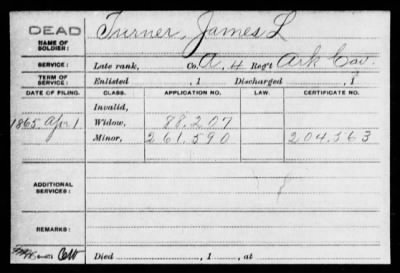 DEAD
NAME OF SOLDIER: Turner, James L
SERVICE: Late rank, Co. A, 4 Reg't Ark Cav.
TERM OF SERVICE: Enlisted , 1 Discharged , 1
DATE OF FILING. CLASS. APPLICATION NO. LAW. CERTIFICATE NO.
Invalid,
1865 Apr 1 Widow, 88.207
Minor, 261.590 204.563
ADDITIONAL SERVICES:
REMARKS:
Died , 1 , at